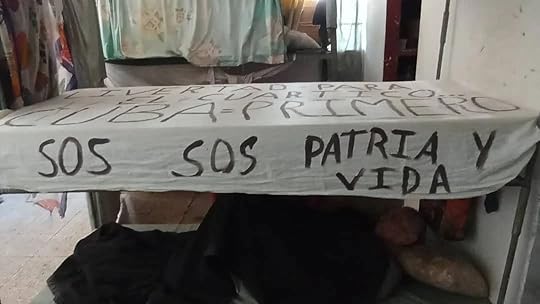 LIVERTAD PARA
EL
CUBA=PRIMERO
SOS SOS PATRIA Y
VIDA